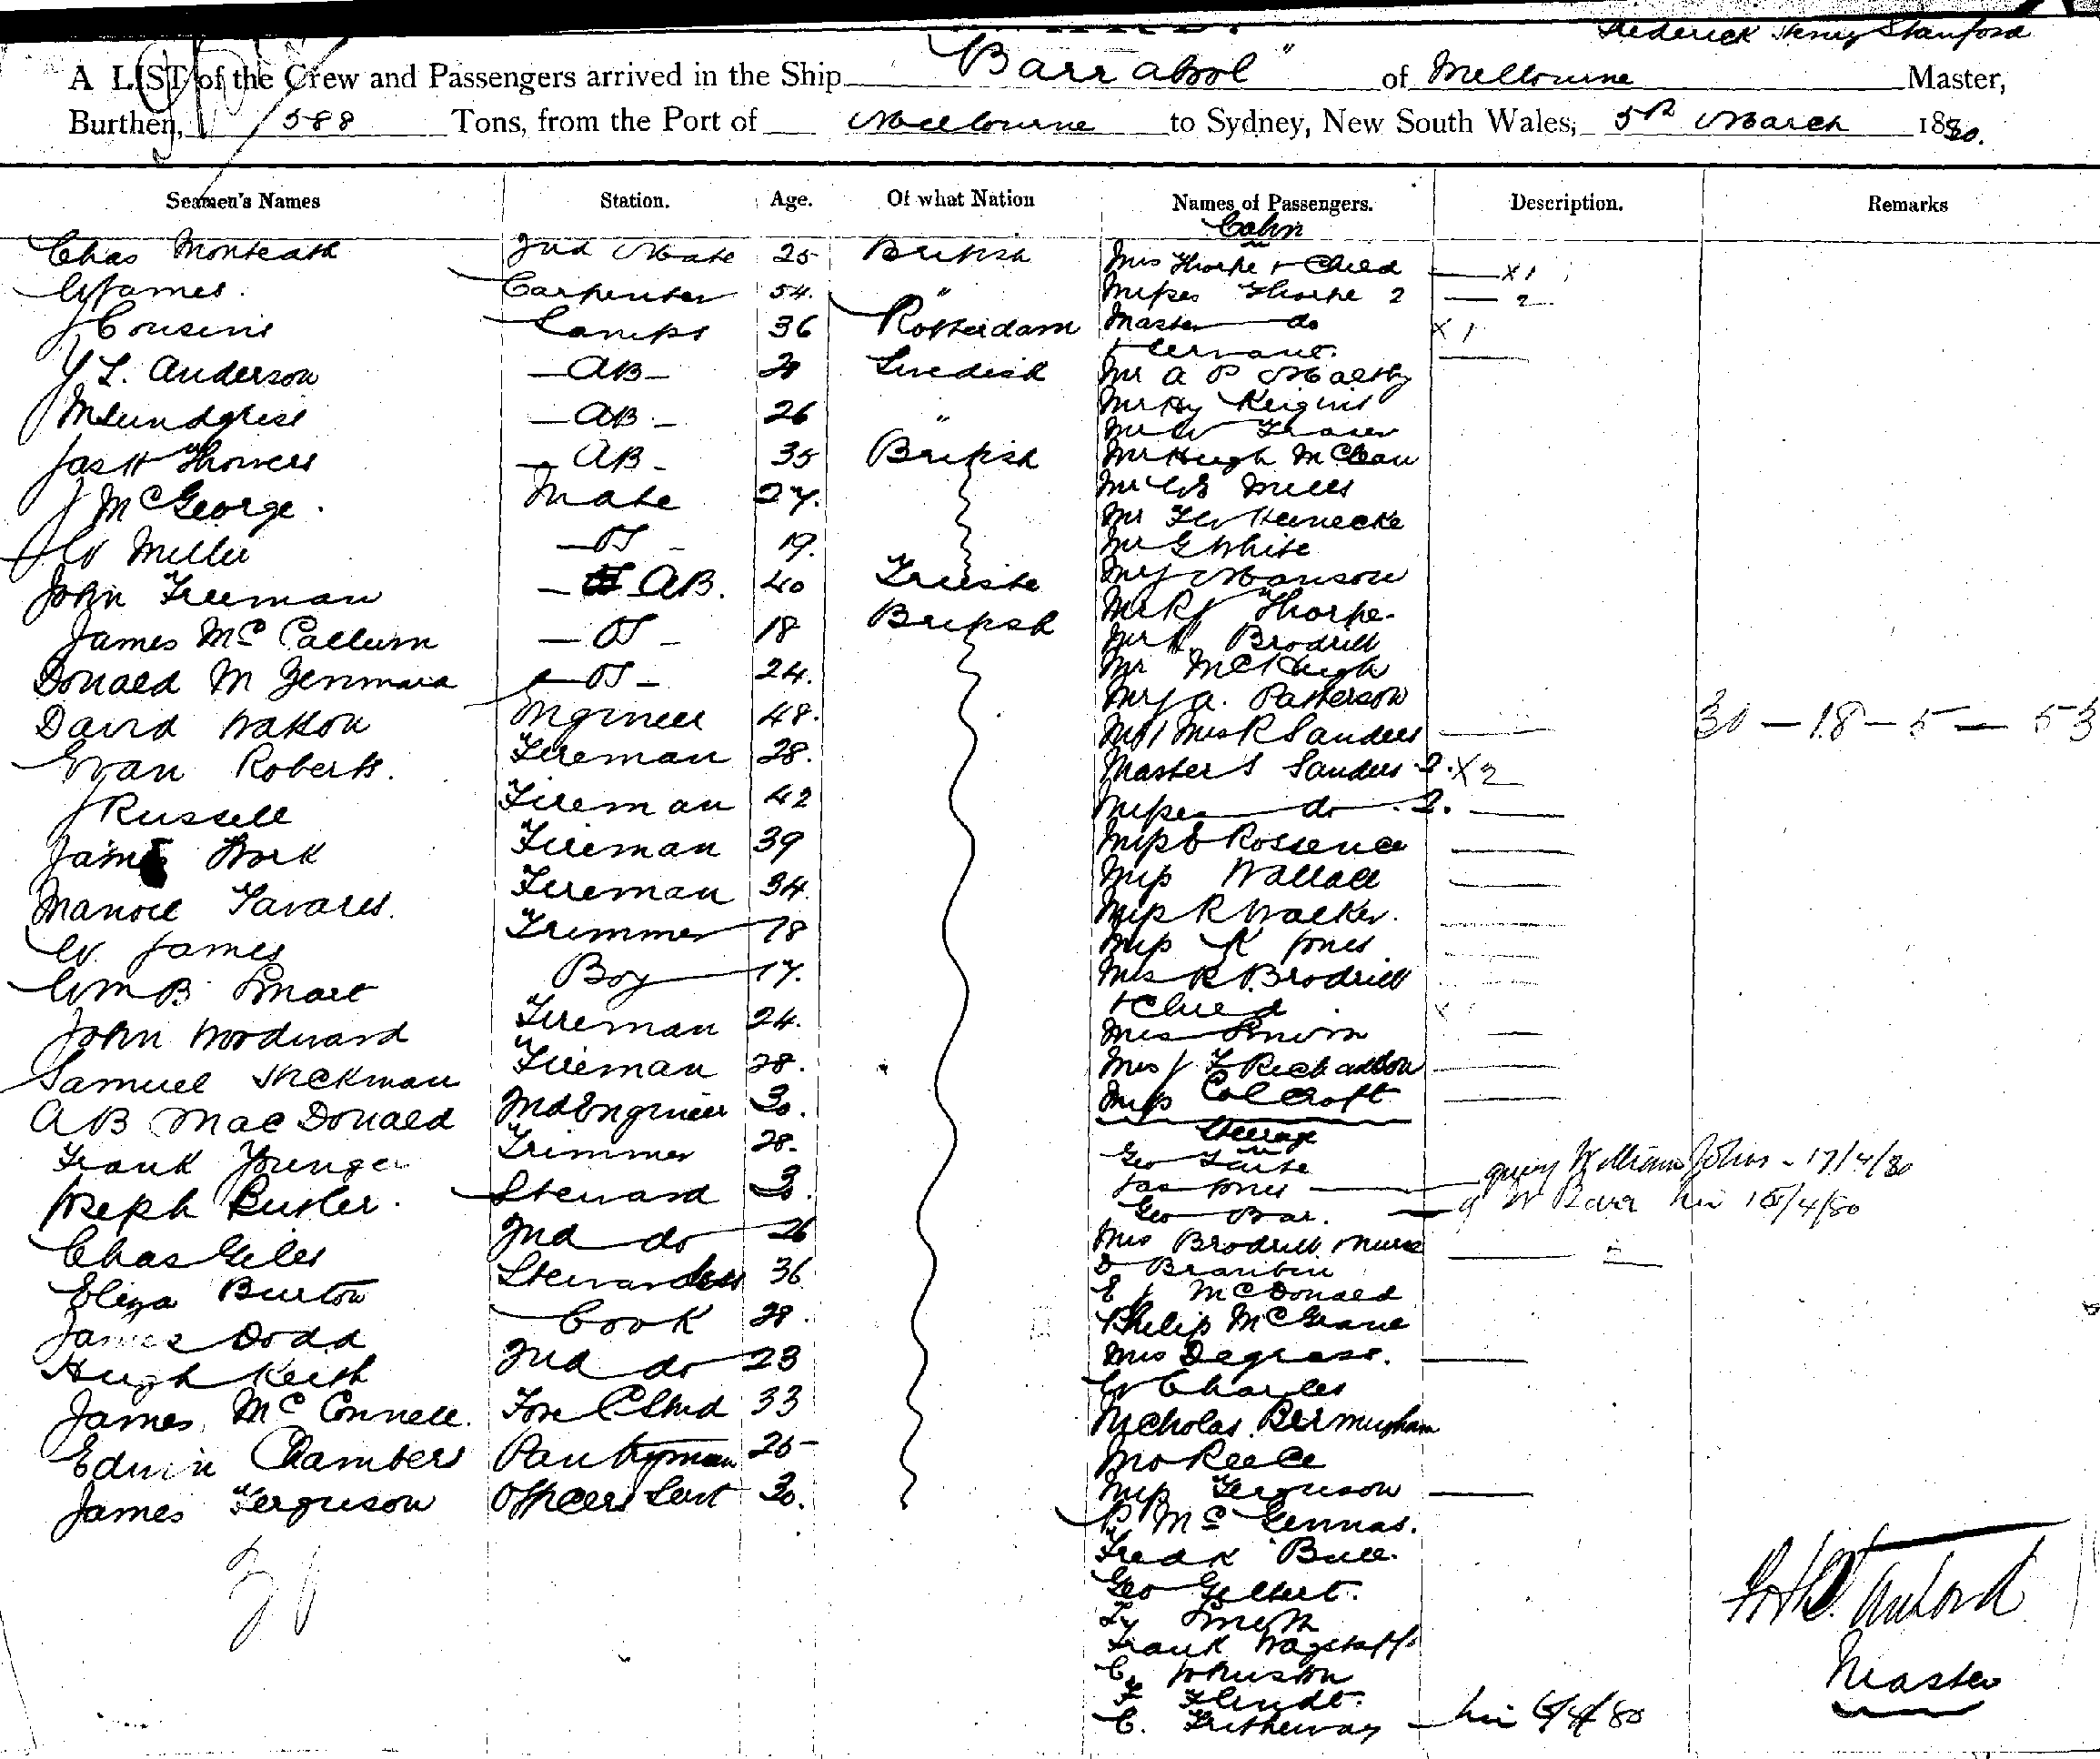 Frederick Henry Stanford
A LIST of the Crew and Passengers arrived in the Ship "Barrabool" of Melbourne Master,
Burthen, 588 Tons, from the Port of Melbourne to Sydney, New South Wales, 5th March 1880.
Seamen's Names Station. Age. Of what Nation Names of Passengers. Description. Remarks
Cabin
Chas Monteath 2nd Mate 25 British Mrs Thorpe + Child X 1
W James. Carpenter 54. " Misses Thorpe 2 2
J Cousins Lamps 36 Rotterdam Master do X 1
+ Servant.
Y L. Anderson AB Swedish Mr A P Maltby
M Lundgren AB 26 " Mr Hy
Mr W Fraser
Jas H Flowers AB 35 British Mr Hugh McLean
J McGeorge. Mate 27. Mr W G Mills
Mr F W Heinecke
W Miller OS 19. Mr G White
John Freeman AB. 40 Trieste Mr J Manson
Mr R J Thorpe
James McCallum OS 18 British Mr Brodribb
Donald M OS 24. Mr McHugh
Mr J A. Patterson
David Watson Engineer 48. Mr + Mrs R Sanders 30 - 18 - 5 - 53
Evan Roberts. Fireman 28. Masters Sanders 2. X 2
J Russell Fireman 42 Misses do 2.
James Work Fireman 39 Miss E
Miss Wallace
Manoel Tavares. Fireman 34. Miss R Walker.
W. James Trimmer 18 Miss K Jones
Wm B Smart Boy 17. Mrs R. Brodribb
+ Child
John Woodward Fireman 24. Mrs
Samuel Hickman Fireman 28. Mrs J F Richardson
AB MacDonald 2nd Engineer 30. Miss Colcroft
Steerage
Frank Younger Trimmer 28. Geo
Jas Jones query William Johns - 17/4/80
Joseph Butler. Steward 30. Geo Bar. W Barr 15/4/80
Chas Giles 2nd do 26 Mrs Brodribb Nurse
D
Eliza Burton Stewardess 36 E J McDonald
James Dodd Cook 29. Philip McGrane
Hugh Keith 2nd do 23 Mrs Degrass.
W Charles
James McConnell. Fore C Stwd 33 Nicholas Bermingham
Edwin Chambers Pantryman 25 Reece
James Ferguson Officers Servt 30. Miss Ferguson
P Mc Gennas.
Fredk Bull.
Geo Gilbert.
Smith
Frank Wagstaff
C Johnston
F
C. Tretheway 80
F H Stanford
Master